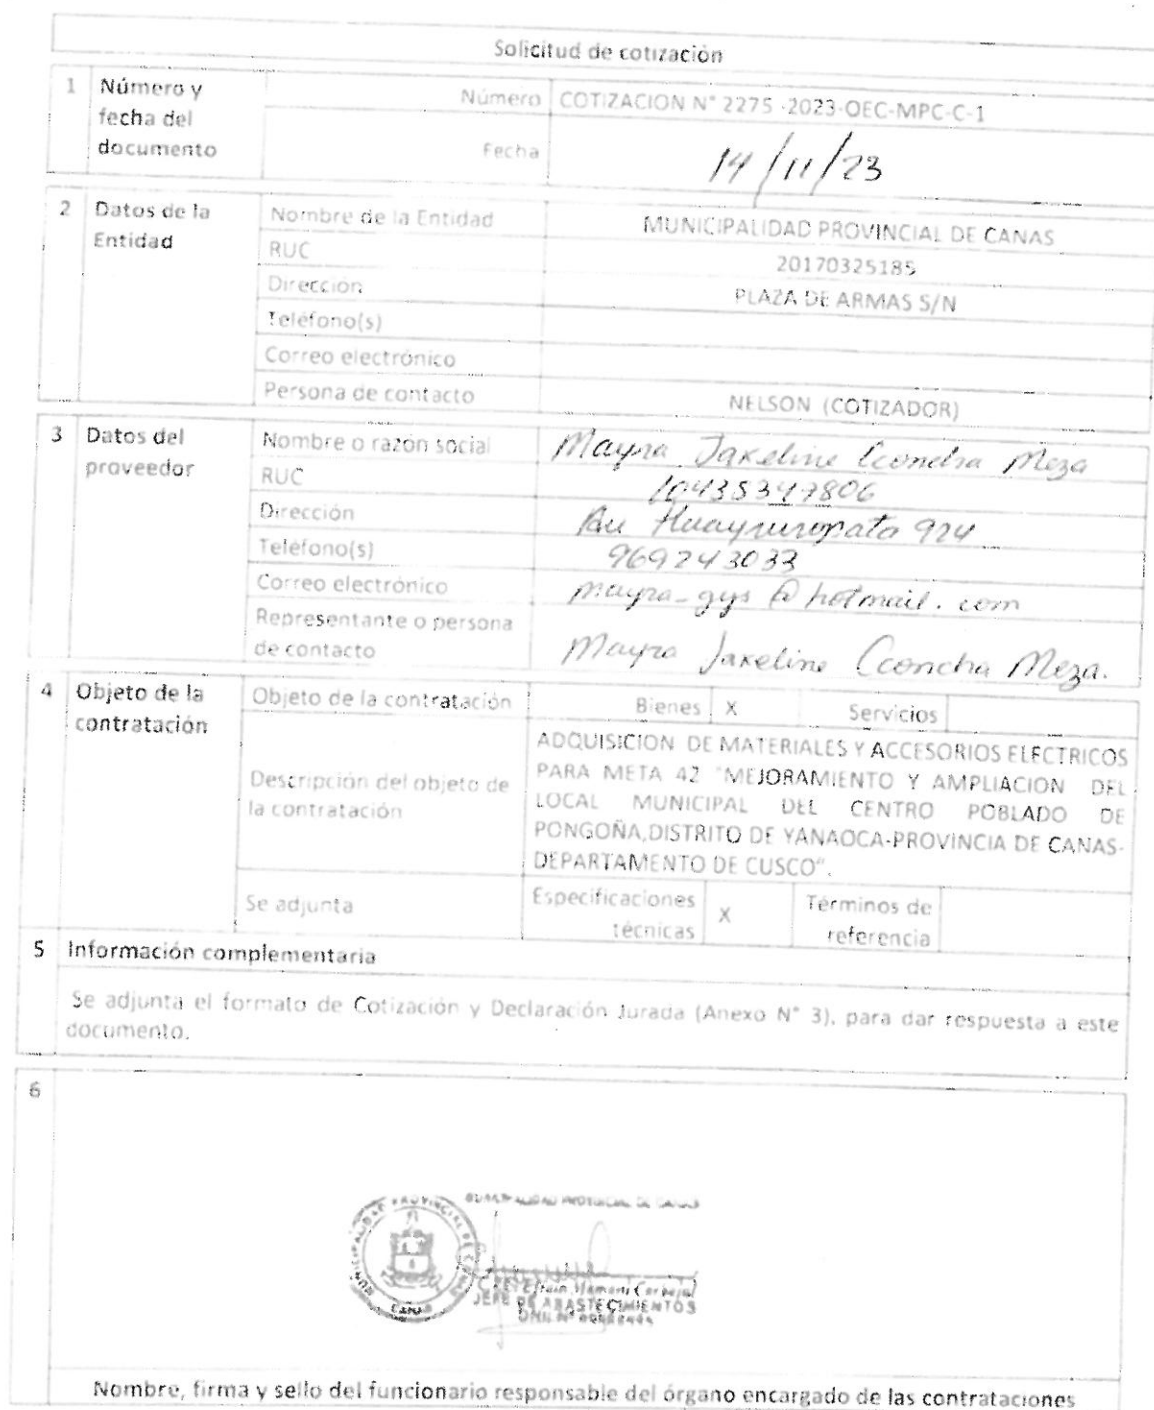 Solicitud de cotización
1 Número y fecha del documento
Número COTIZACION N° 2275 -2023-OEC-MPC-C-1
Fecha 14/11/23
2 Datos de la Entidad
Nombre de la Entidad MUNICIPALIDAD PROVINCIAL DE CANAS
RUC 20170325185
Dirección PLAZA DE ARMAS S/N
Teléfono(s)
Correo electrónico
Persona de contacto NELSON (COTIZADOR)
3 Datos del proveedor
Nombre o razón social Mayra Jakeline Cconcha Meza
RUC 10435347806
Dirección Av Huayruropata 924
Teléfono(s) 969243033
Correo electrónico mayra_gys@hotmail.com
Representante o persona de contacto Mayra Jakeline Cconcha Meza.
4 Objeto de la contratación
Objeto de la contratación Bienes X Servicios
Descripción del objeto de la contratación
ADQUISICION DE MATERIALES Y ACCESORIOS ELECTRICOS
PARA META 42 "MEJORAMIENTO Y AMPLIACION DEL
LOCAL MUNICIPAL DEL CENTRO POBLADO DE
PONGOÑA,DISTRITO DE YANAOCA-PROVINCIA DE CANAS-
DEPARTAMENTO DE CUSCO".
Se adjunta Especificaciones técnicas X Términos de referencia
5 Información complementaria
Se adjunta el formato de Cotización y Declaración Jurada (Anexo N° 3), para dar respuesta a este
documento.
6
MUNICIPALIDAD PROVINCIAL DE CANAS
MUNICIPALIDAD PROVINCIAL DE CANAS
Efrain Mamani Carbajal
JEFE DE ABASTECIMIENTOS
Nombre, firma y sello del funcionario responsable del órgano encargado de las contrataciones